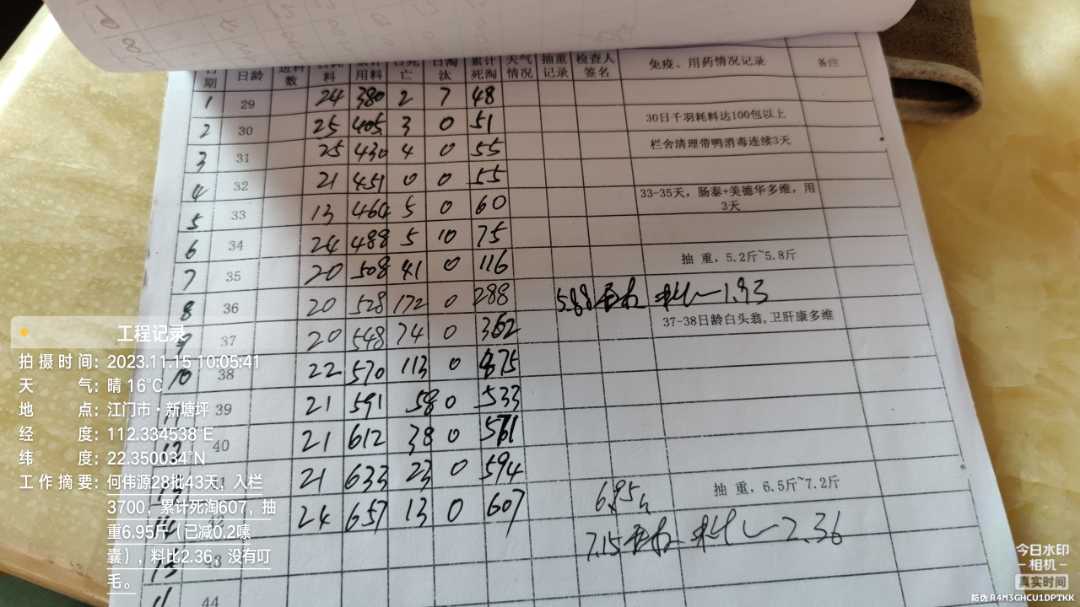 日期 日龄 送料数 日耗料 累计用料 日死亡 日淘汰 累计死淘 天气情况 抽重记录 检查人签名 免疫、用药情况记录 备注
1 29 24 380 2 7 48
2 30 25 405 3 0 51 30日千羽耗料达100包以上
3 31 25 430 4 0 55 栏舍清理带鸭消毒连续3天
4 32 21 451 0 0 55
5 33 13 464 5 0 60 33-35天，肠泰+美德华多维，用3天
6 34 24 488 5 10 75
7 35 20 508 41 0 116 抽重，5.2斤~5.8斤
8 36 20 528 172 0 288 5.88 1.93
9 37 20 548 74 0 362 37-38日龄白头翁，卫肝康多维
10 38 22 570 113 0 475
11 39 21 591 58 0 533
12 40 21 612 38 0 571
13 21 633 23 0 594
14 24 657 13 0 607 6.95斤 抽重，6.5斤~7.2斤
15 3 7.15 2.36
44
工程记录
拍摄时间：2023.11.15 10:05:41
天气：晴 16℃
地点：江门市·新塘坪
经度：112.334538°E
纬度：22.350034°N
工作摘要：何伟源28批43天，入栏
3700，累计死淘607，抽
重6.95斤（已减0.2嗉
囊），料比2.36，没有叮
毛。
今日水印
相机
真实时间
防伪 R4M3GHCU1DPTKK